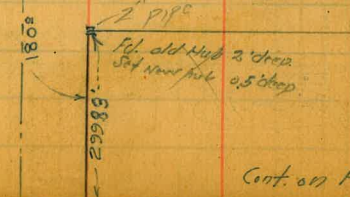 2" pipe
Fd. old Hub 2' deep
Set New hub 0.5' deep
180°
299.83'
Cont. on